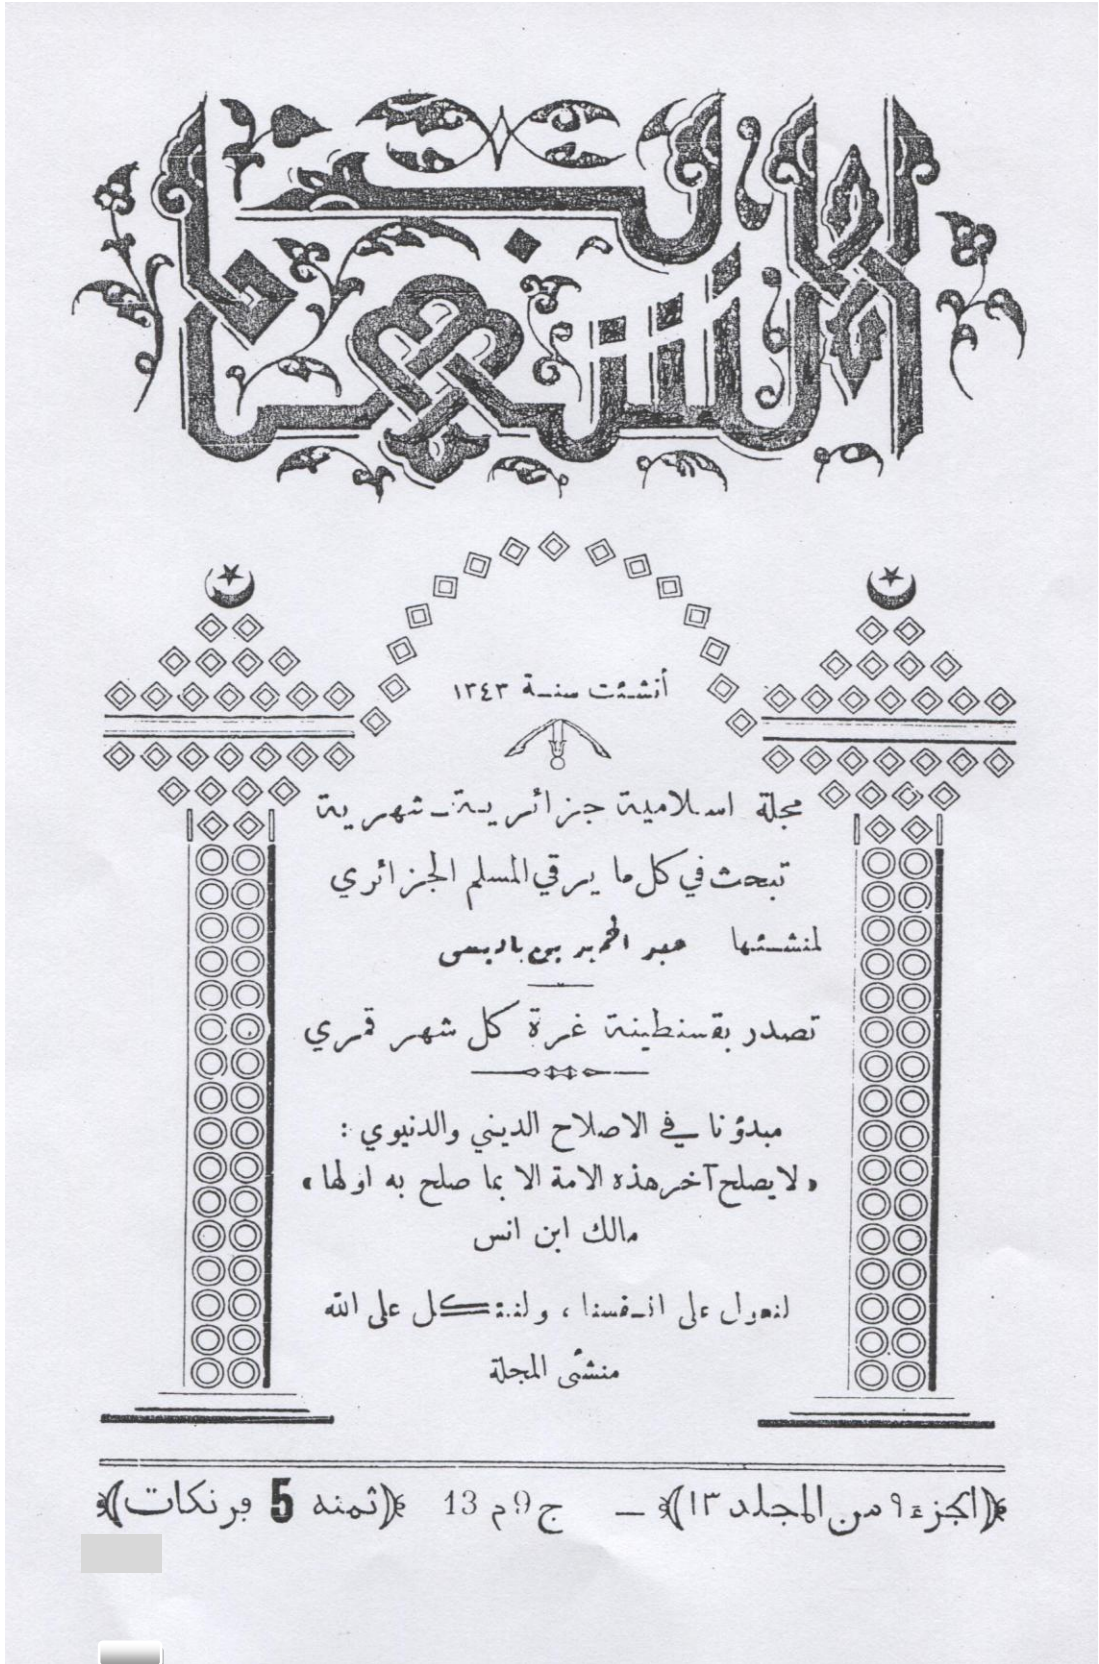 الشهاب
أنشئت سنة ١٣٤٣
مجلة اسلامية جزائرية ـ شهرية
تبحث في كل ما يرقي المسلم الجزائري
لمنشئها عبد الحميد بن باديس
تصدر بقسنطينة غرة كل شهر قمري
مبدؤنا في الاصلاح الديني والدنيوي :
« لا يصلح آخر هذه الامة الا بما صلح به اولها »
مالك ابن انس
لنعول على انفسنا ، ولنتكل على الله
منشئ المجلة
﴿الجزء ٩ من المجلد ١٣﴾ — ج 9 م 13 ﴿ثمنه 5 فرنكات﴾